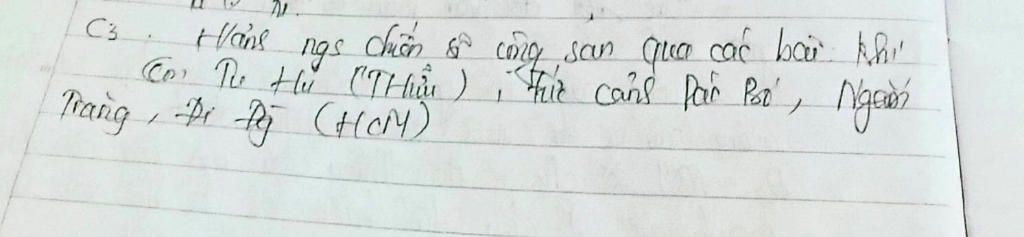 C3. Hảng ngs chiến sĩ cộng sản qua các bài Khi
Con Tu Hú (THữu), tức cảnh Pác Bó, Ngắm
Trăng, Đi Đg (HCM)